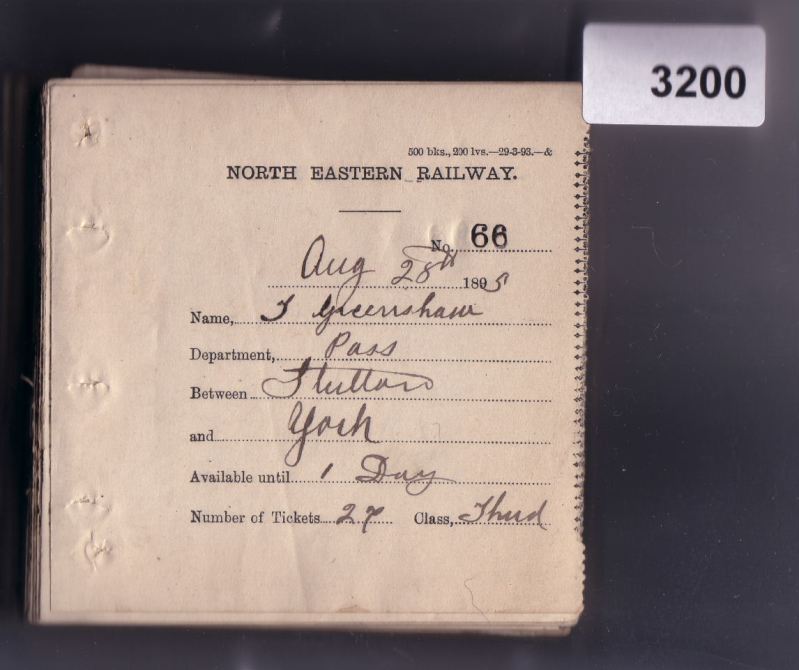 3200
500 bks., 200 lvs.—29-3-93.—&
NORTH EASTERN RAILWAY.
No. 66
Aug 28th 1895
Name, T Greenshaw
Department, Pass
Between Stutton
and York
Available until 1 Day
Number of Tickets 27 Class, Third